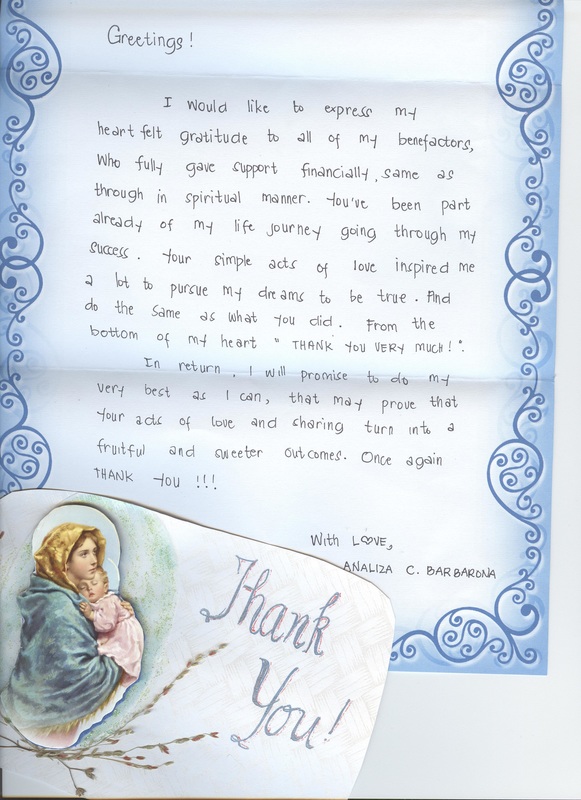 Greetings!
I would like to express my
heart felt gratitude to all of my benefactors,
Who fully gave support financially, same as
through in spiritual manner. You've been part
already of my life journey going through my
success. Your simple acts of love inspired me
a lot to pursue my dreams to be true. And
do the same as what you did. From the
bottom of my heart " THANK YOU VERY MUCH!".
In return, I will promise to do my
very best as I can, that may prove that
your acts of love and sharing turn into a
fruitful and sweeter outcomes. Once again
THANK YOU !!!
With LOVE,
ANALIZA C. BARBARONA
Thank
You!